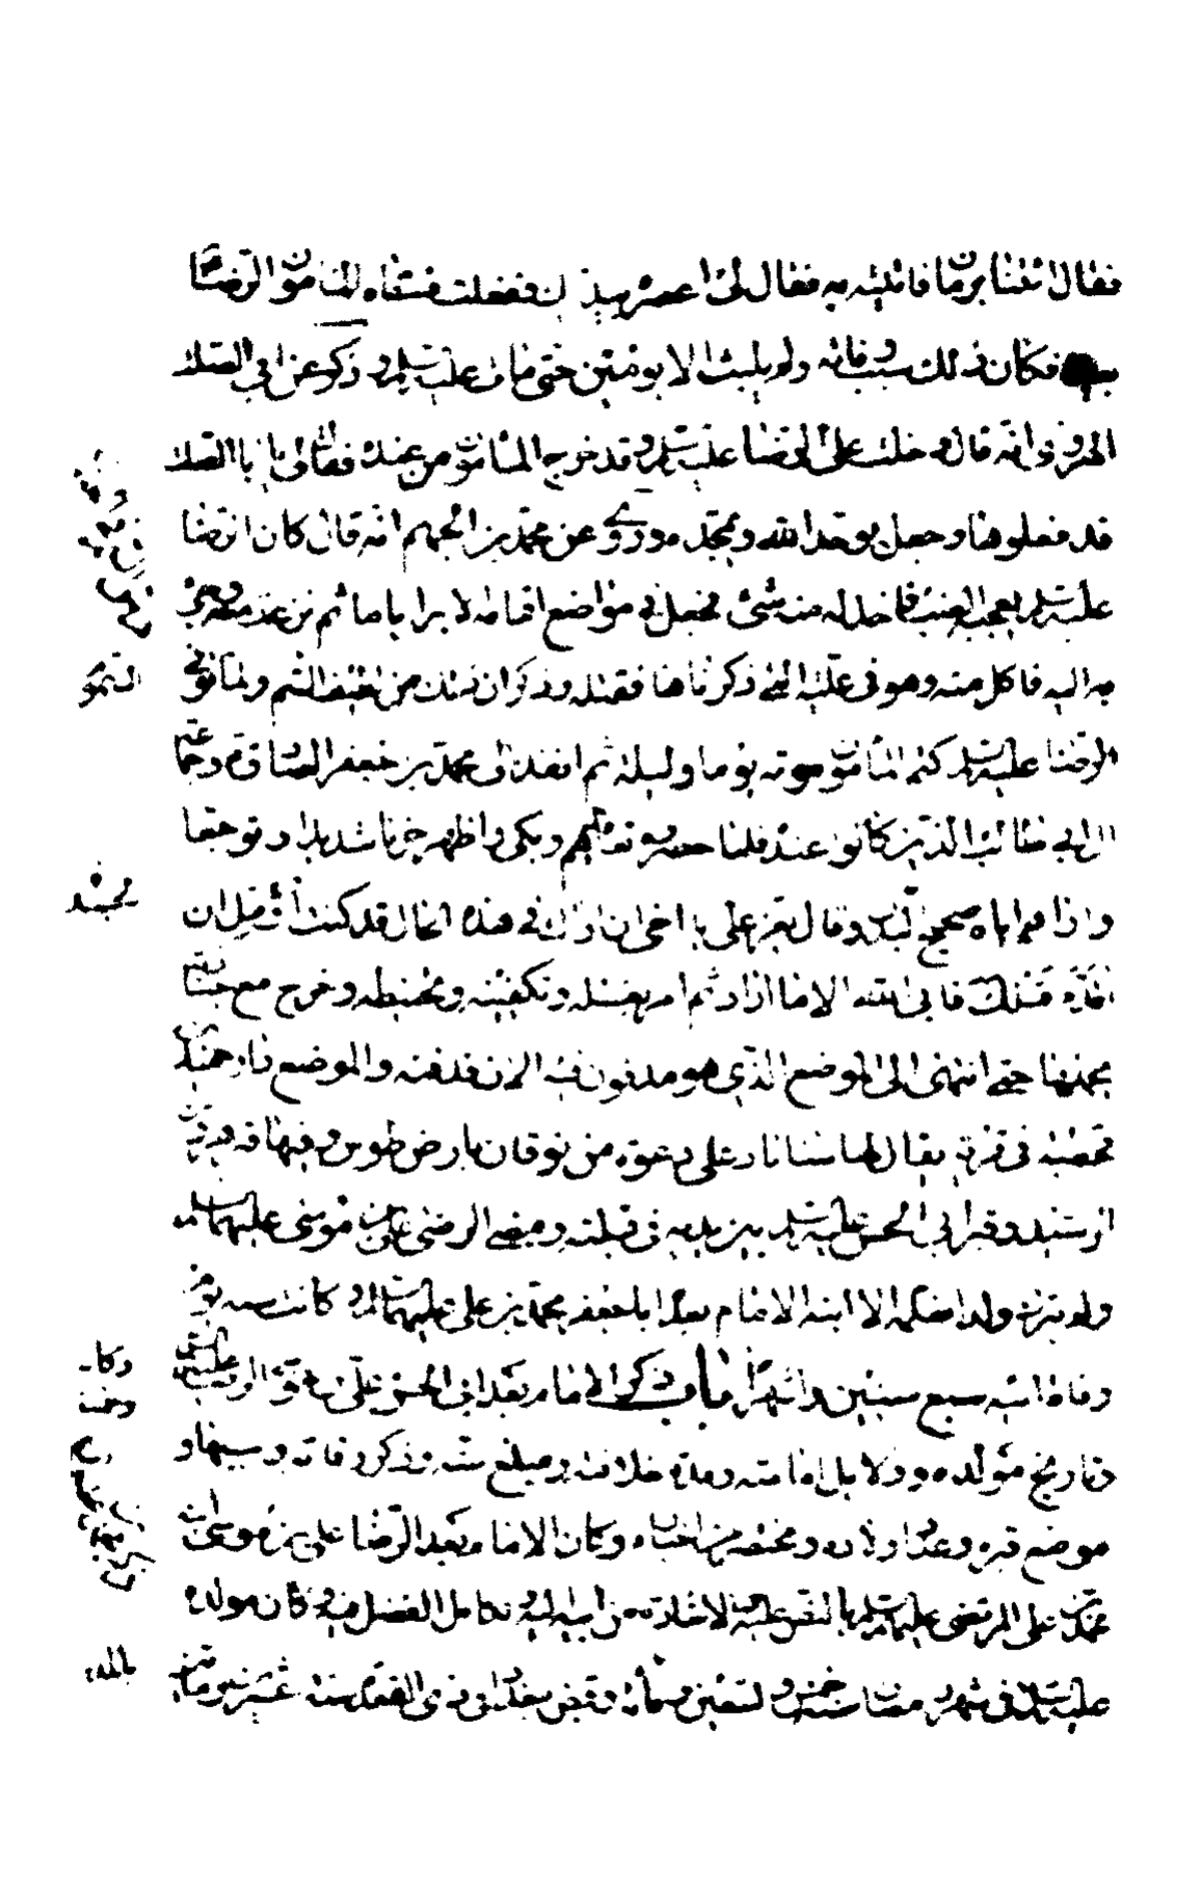 فقال ائتنا برمان فاتيته به فقال لي اعصر بيديك ففعلت فسقاه المامون الرضا
بيده فكان ذلك سبب وفاته ولم يلبث الا يومين حتى مات عليه السلم وذكر عن ابي الصلت
الهروي انه قال دخلت على الرضا عليه السلم وقد خرج المامون من عنده فقال لي يا با الصلت
قد فعلوها وجعل يوحد الله ويمجده وروي عن محمد بن الجهم انه قال كان الرضا
عليه السلم يعجبه العنب فاخذ له منه شيء فجعل في مواضع اقماعه الابر اياما ثم نزعت منه وجئ
به اليه فاكل منه وهو في علته التي ذكرناها فقتله وذكر ان ذلك من لطيف السم ولما توفي
الرضا عليه السلم كتم المامون موته يوما وليلة ثم انفذ الى محمد بن جعفر الصادق وجماعة
ال ابي طالب الذين كانوا عنده فلما حضروه نعاه اليهم وبكى واظهر حزنا شديدا وتوجعا
واراهم اياه صحيح الجسد وقال يعز علي يا اخي ان اراك في هذه الحال قد كنت اؤمل ان
اقدم قبلك فابى الله الا ما اراد ثم امر بغسله وتكفينه وتحنيطه وخرج مع جنازته
يحملها حتى انتهى الى الموضع الذي هو مدفون فيه الان فدفنه والموضع دار حميد بن
قحطبة في قرية يقال لها سناباد على دعوة من نوقان بارض طوس وفيها قبر هرون
الرشيد وقبر ابي الحسن عليه السلم بين يديه في قبلته ومضى الرضى علي بن موسى عليهما السلم
ولم يترك ولدا نعلمه الا ابنه الامام بعده ابا جعفر محمد بن علي عليهما السلم وكانت سنه يوم
وفاة ابيه سبع سنين واشهرا باب ذكر الامام بعد ابي الحسن علي بن موسى الرضا عليه السلم
وتاريخ مولده ودلايل امامته ومدة خلافته ومبلغ سنه وذكر وفاته وسببها و
موضع قبره وعدد اولاده ومختصر من اخباره وكان الامام بعد الرضا علي بن موسى ابنه
محمد بن علي المرتضى عليهما السلم بالنص عليه والاشارة من ابيه اليه وتكامل الفضل فيه وكان مولده
عليه السلم في شهر رمضان سنة خمس وتسعين ومائة وقبض ببغداد في ذي القعدة سنة عشرين ومائتين